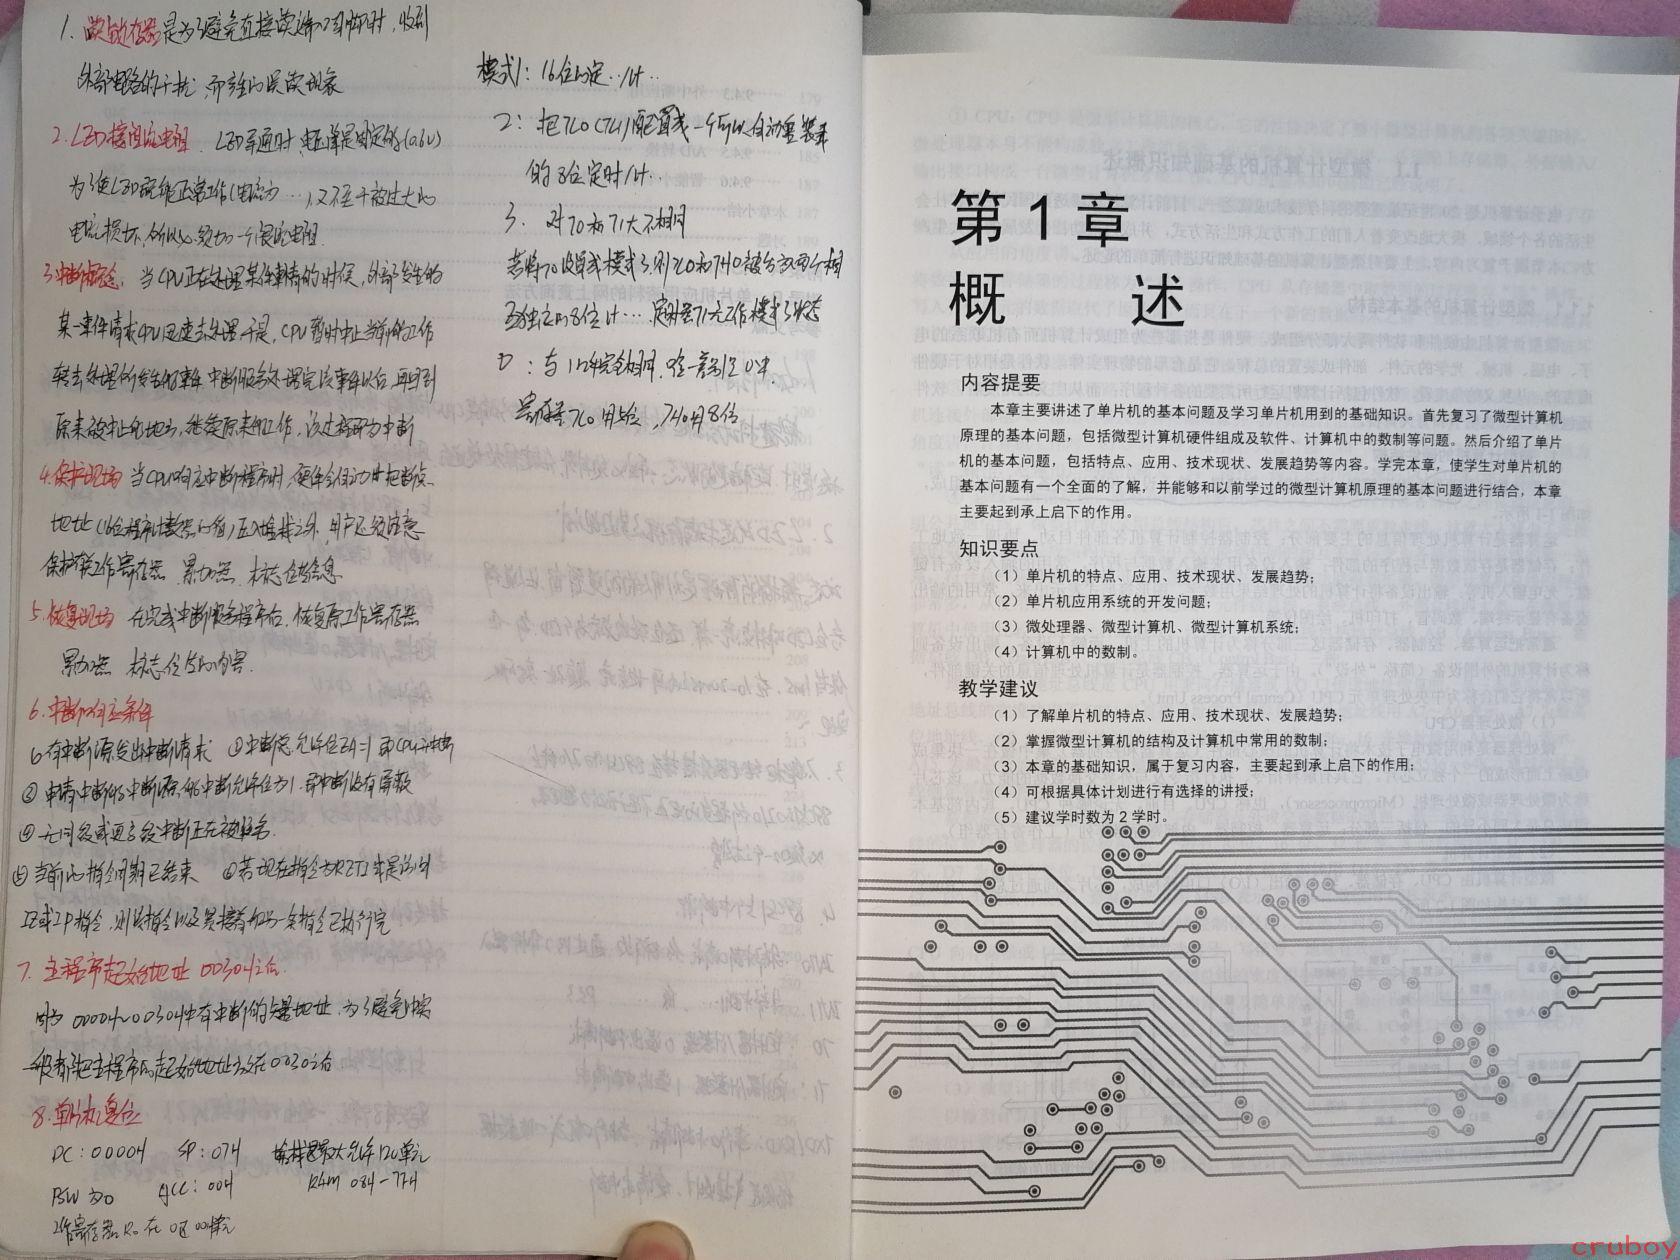 1. 读锁存器是为了避免直接读端口引脚时,收到
外部电路的干扰,而产生的误读现象
2. LED接限流电阻. LED导通时,电压降是固定的(0.6V)
为了使LED既能正常工作(电流为…),又不至于被过大的
电流损坏,所以必须加一个限流电阻.
3.中断概念. 当CPU正在处理某件事情的时候,外部发生的
某一事件请求CPU迅速去处理,于是,CPU暂时中止当前的工作
转去处理所发生的事件 中断服务处理完该事件以后,再回到
原来被中止的地方,继续原来的工作,该过程称为中断
4.保护现场 当CPU响应中断程序时,硬件会自动时把断点
地址(16位程序计数器的值)压入堆栈之外,用户还须注意
保护有关工作寄存器 累加器 标志位等信息
5.恢复现场 在完成中断服务程序后,恢复原工作寄存器
累加器 标志位等的内容.
6.中断响应条件
有中断源发出中断请求 ②中断总允许位EA=1 即CPU开中断
③申请中断的中断源的中断允许位为1.即中断没有屏蔽
④无同级或更高级中断正在被服务.
⑤当前的指令周期已结束 ⑥若现在指令为RETI或是访问
IE或IP指令,则该指令以及紧接着的另一条指令已执行完
7. 主程序起始地址 0030H之后.
因为 0000H~0030H中有中断的矢量地址,为了避免冲突
一般都把主程序的起始地址放在0030之后
8.单片机复位
PC:0000H SP:07H 堆栈最大允许120单元
PSW为0 ACC:00H RAM 08H-77H
工作寄存器R0在0区00单元
模式1:16位的定…/计…
2:把TL0(TL1)配置成一个可以自动重装载
的8位定时/计…
3. 对T0和T1大不相同
若将T0设置成模式3,则TL0和TH0被分为两个相
互独立的8位计… 定时器T1无工作模式3状态
0:与1几乎完全相同,唯一差别是0中.
寄存器TL0用5位,TH0用8位
第1章
概 述
内容提要
本章主要讲述了单片机的基本问题及学习单片机用到的基础知识。首先复习了微型计算机
原理的基本问题,包括微型计算机硬件组成及软件、计算机中的数制等问题。然后介绍了单片
机的基本问题,包括特点、应用、技术现状、发展趋势等内容。学完本章,使学生对单片机的
基本问题有一个全面的了解,并能够和以前学过的微型计算机原理的基本问题进行结合,本章
主要起到承上启下的作用。
知识要点
(1)单片机的特点、应用、技术现状、发展趋势;
(2)单片机应用系统的开发问题;
(3)微处理器、微型计算机、微型计算机系统;
(4)计算机中的数制。
教学建议
(1)了解单片机的特点、应用、技术现状、发展趋势;
(2)掌握微型计算机的结构及计算机中常用的数制;
(3)本章的基础知识,属于复习内容,主要起到承上启下的作用;
(4)可根据具体计划进行有选择的讲授;
(5)建议学时数为2学时。
cruboy